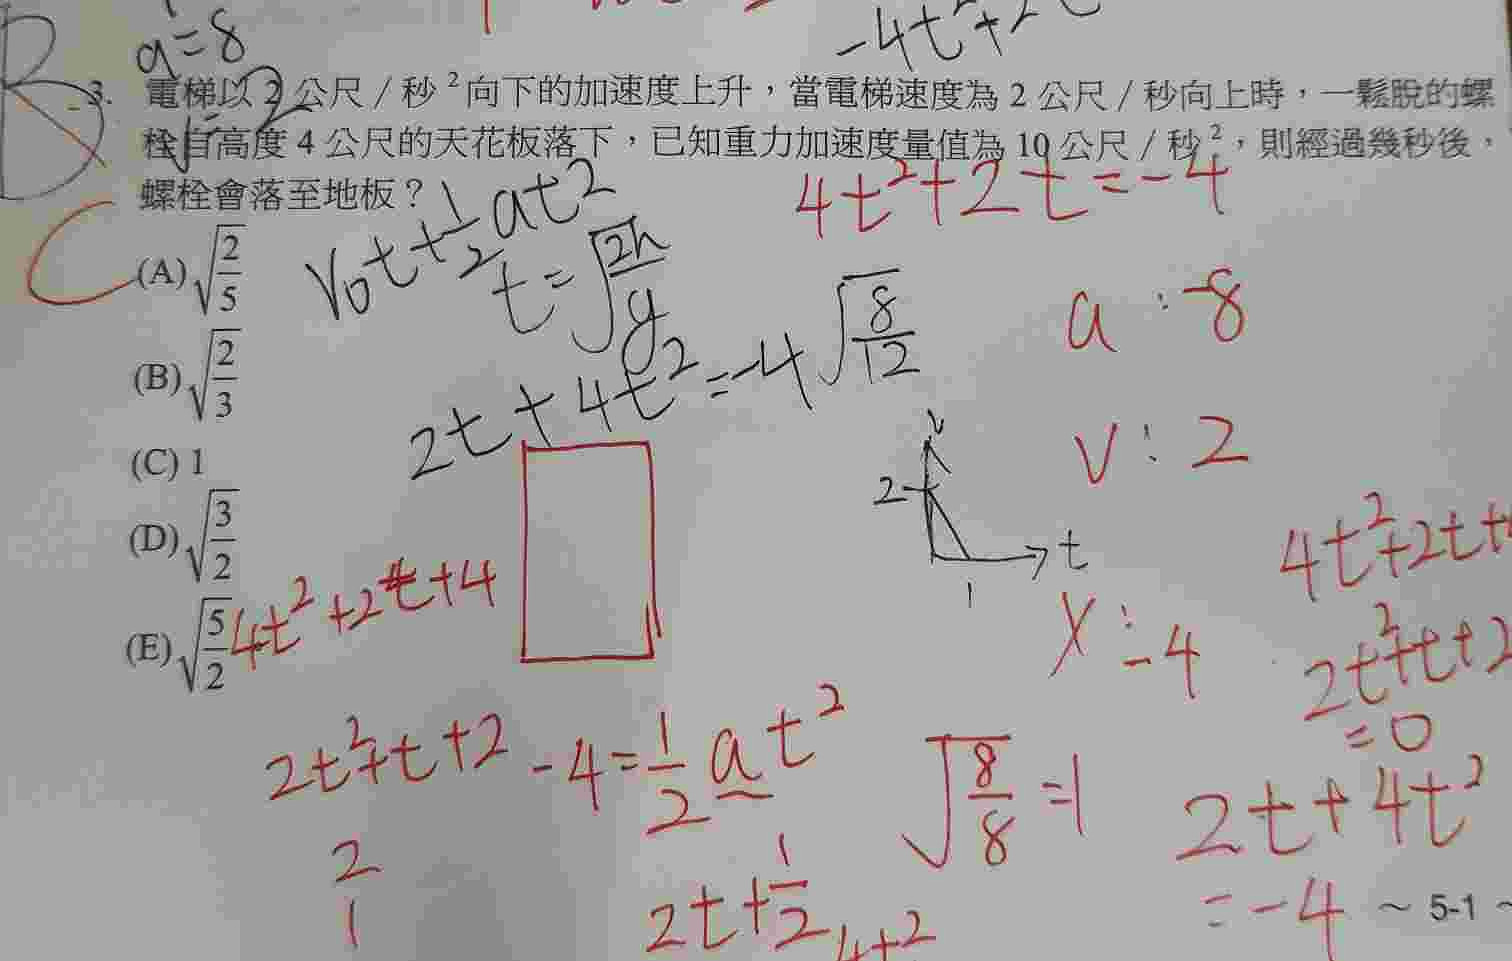 a=8
-4t²+2t
B
3. 電梯以 2 公尺／秒² 向下的加速度上升，當電梯速度為 2 公尺／秒向上時，一鬆脫的螺
栓自高度 4 公尺的天花板落下，已知重力加速度量值為 10 公尺／秒²，則經過幾秒後，
螺栓會落至地板？
4t²+2t=-4
C
V₀t+½at²
(A) √(2/5)
t=√(2h/g)
a:-8
(B) √(2/3)
2t+4t²=-4
√(8/12)
(C) 1
V:2
v
2
t
1
(D) √(3/2)
4t²+2t+
(E) √(5/2)
4t²+2t+4
X:-4
2t²+t+2
=0
2t²+t+2
-4=½at²
√(8/8)=1
2t+4t²
=-4
2
1
2t+½
4t²
～ 5-1 ～